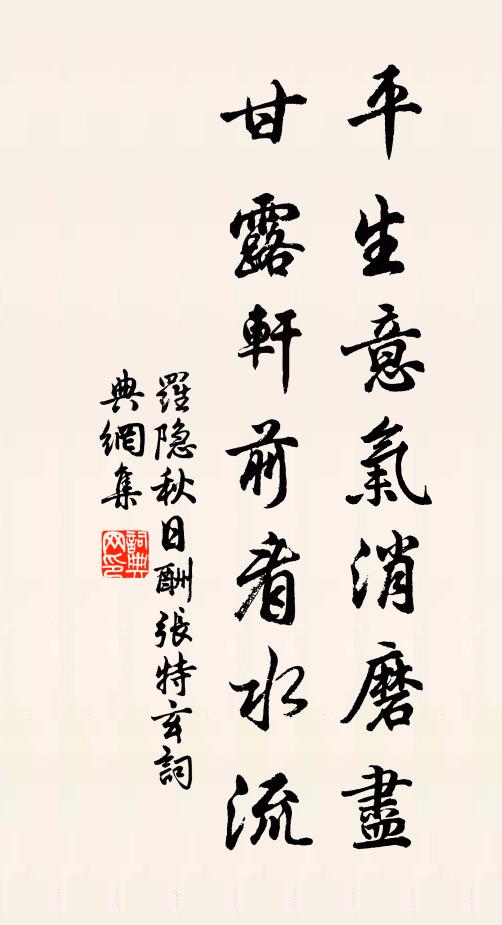 平生意氣消磨盡
甘露軒前看水流
羅隐秋日酬張特玄詞
典網集
詞典
网印